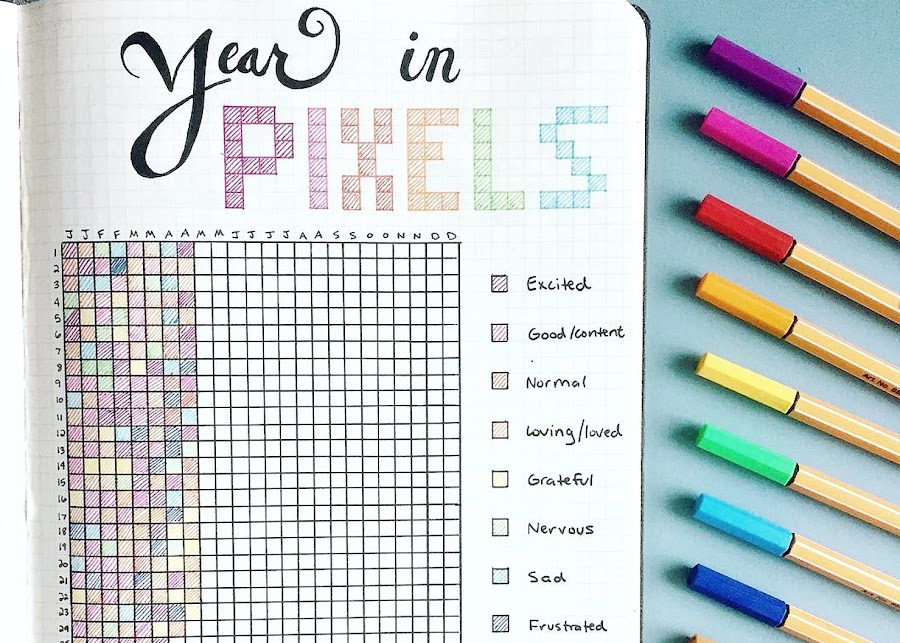 Year in
PIXELS
J J F F M M A A M M J J J J A A S S O O N N D D
1
2
3
4
5
6
7
8
9
10
11
12
13
14
15
16
17
18
19
20
21
22
23
24
Excited
Good/content
Normal
Loving/loved
Grateful
Nervous
Sad
Frustrated
Art. No.